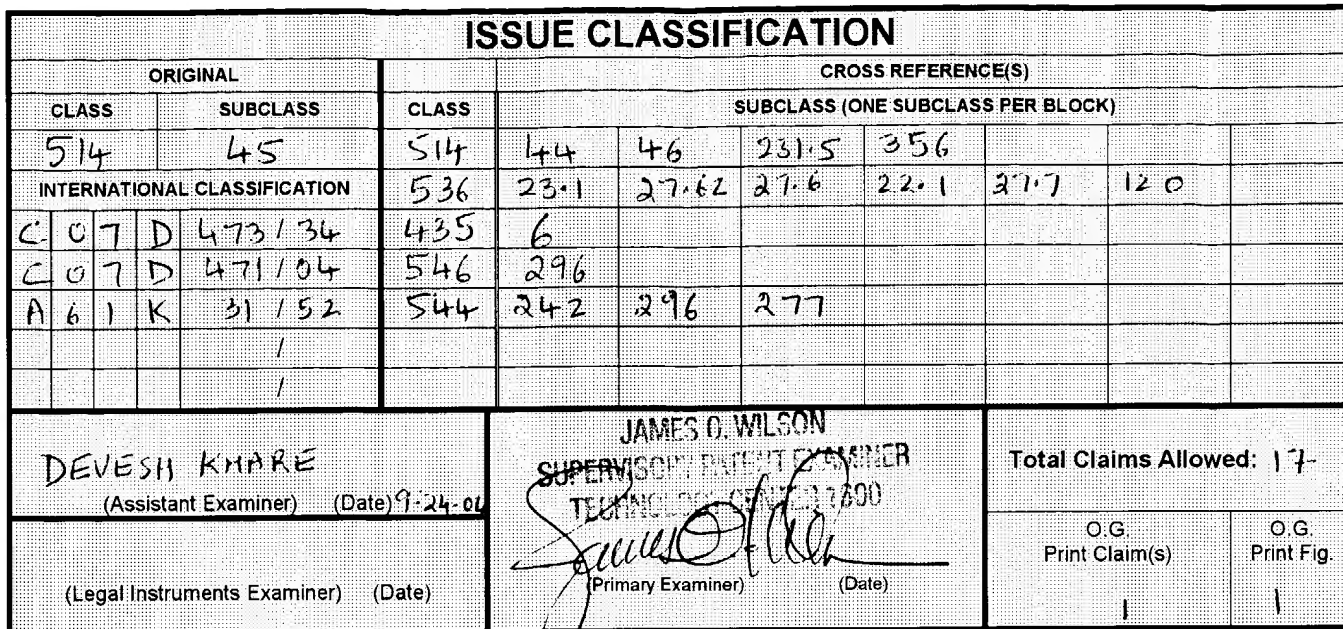 ISSUE CLASSIFICATION
ORIGINAL CROSS REFERENCE(S)
CLASS SUBCLASS CLASS SUBCLASS (ONE SUBCLASS PER BLOCK)
514 45 514 44 46 231.5 356
INTERNATIONAL CLASSIFICATION 536 23.1 27.62 27.6 22.1 27.7 120
C 07 D 473/34 435 6
C 07 D 471/04 546 296
A 61 K 31/52 544 242 296 277
/
/
DEVESH KHARE
(Assistant Examiner) (Date) 9-24-04
JAMES O. WILSON
SUPERVISORY PATENT EXAMINER
TECHNOLOGY CENTER 1600
(Primary Examiner) (Date)
Total Claims Allowed: 17
(Legal Instruments Examiner) (Date)
O.G. O.G.
Print Claim(s) Print Fig.
1 1